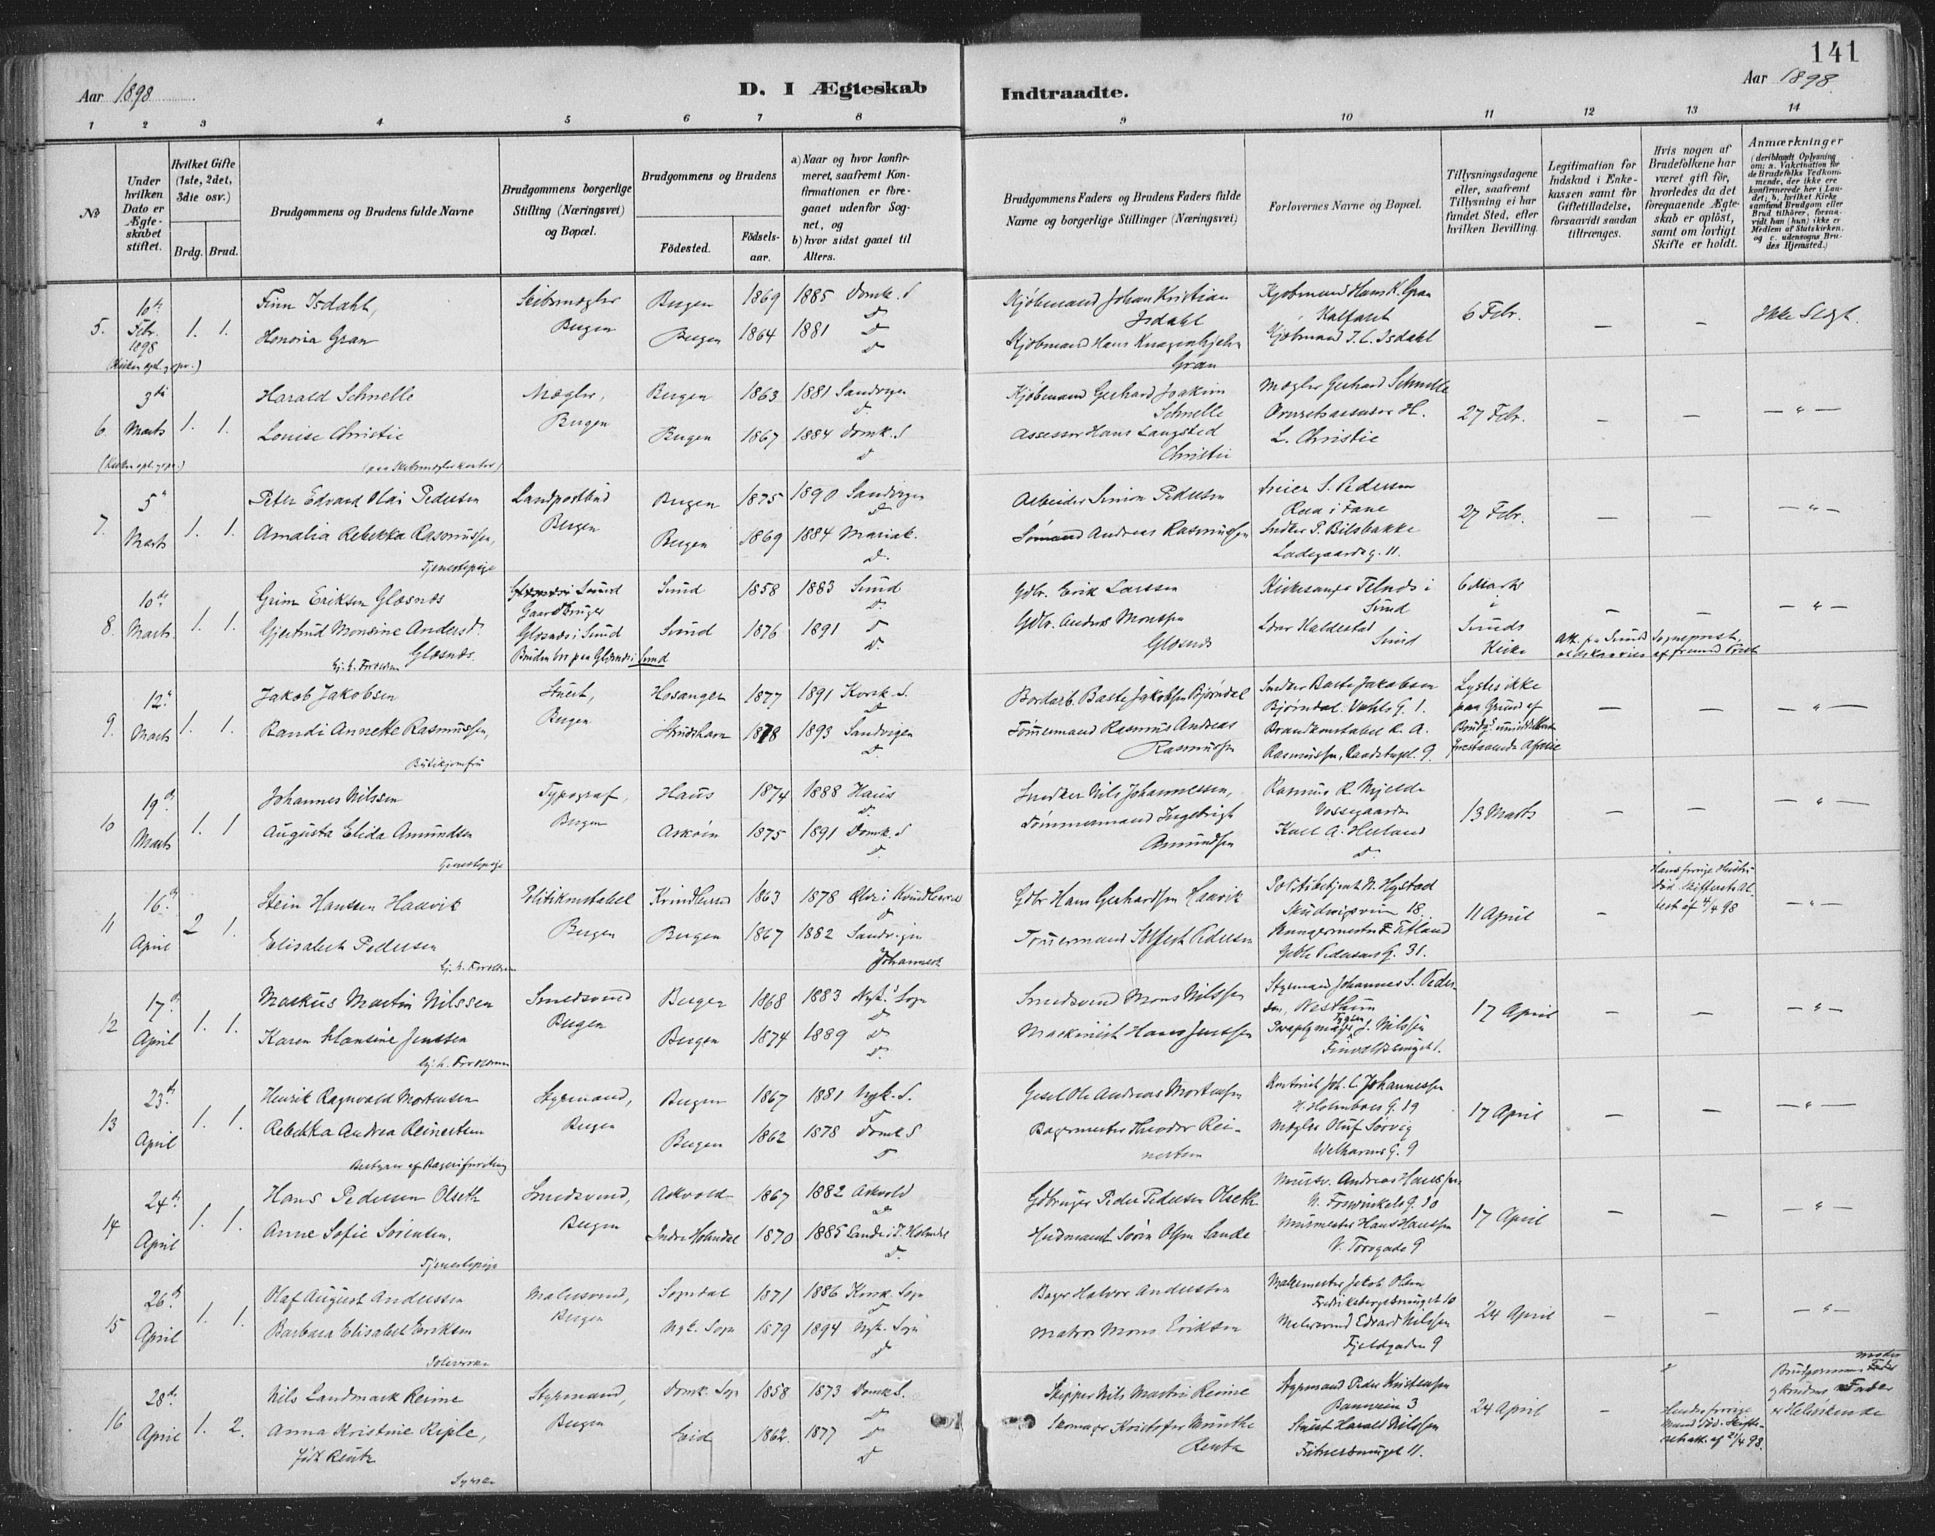 141
Aar 1898
D. I Ægteskab Indtraadte.
Aar 1898
1 2 3 4 5 6 7 8 9 10 11 12 13 14
No
Under hvilken Dato er Ægteskabet stiftet.
Hvilket Gifte (1ste, 2det, 3die osv.)
Brdg. Brud.
Brudgommens og Brudens fulde Navne
Brudgommens borgerlige Stilling (Næringsvei) og Bopæl.
Brudgommens og Brudens
Födested. Födselsaar.
a) Naar og hvor konfirmeret, saafremt Konfirmationen er foregaaet udenfor Sognet, og
b) hvor sidst gaaet til Alters.
Brudgommens Faders og Brudens Faders fulde Navne og borgerlige Stillinger (Næringsvei)
Forlovernes Navne og Bopæl.
Tillysningsdagene eller, saafremt Tillysning ei har fundet Sted, efter hvilken Bevilling.
Legitimation for Indskud i Enkekassen samt for Giftetilladelse, forsaavidt saadan tiltrænges.
Hvis nogen af Brudefolkene har været gift för, hvorledes da det foregaaende Ægteskab er oplöst, samt om lovligt Skifte er holdt.
Anmærkninger
(deriblandt Oplysning om: a. Vakcination for de Brudefolks Vedkommende, der ikke ere konfirmerede her i Landet; b. hvilket Kirkesamfund Brudgom eller Brud tilhörer, forsaavidt han (hun) ikke er Medlem af Statskirken, og c. udensogns Brudes Hjemsted.)
5. 10de Febr. 1898 1. 1.
Finn Isdahl, Skibsmægler Bergen 1869 1885 Domk. S
Bergen
Honoria Gran Bergen 1864 1881 d
Kjøbmand Johan Kristian Isdahl
Kjøbmand Hans Knagenhjelm Gran
Kjøbmand Hans K. Gran
Kalfaret
Kjøbmand J. C. Isdahl
6 Febr. — — Ikke Slegt.
6. 3die Marts 1. 1.
Harald Schnelle Mægler, Bergen 1863 1881 Sandvigen
Bergen
Louise Christie Bergen 1867 1884 Domk. S
Kjøbmand Gerhard Joakim Schnelle
Assessor Hans Langsted Christie
Mægler Gerhard Schnelle
L. Christie
27 Febr. — — — " —
7. 5te Marts 1. 1.
Peter Edvard Olai Pedersen Landpostbud Bergen 1875 1890 Sandvigen
Bergen
Amalia Rebekka Rasmussen, Bergen 1869 1884 Mariak.
Tjenestepige
Arbeider Simon Pedersen
Sømand Andreas Rasmussen
S. Pedersen
i Fane
Snedker P. Bilsbakke
Ladegaardsg. 11.
27 Febr. — — — " —
8. 10de Marts 1. 1.
Grim Eriksen Glæsnæs Gaardbruger Sund 1858 1883 Sund
Gjertrud Monsine Andersd. Glæsnæs i Sund Sund 1876 1891 d
Glæsnæs.
Bruden bor paa Glæsnæs i Sund
Gdbr. Erik Larssen
Gdbr. Anders Monssen
Glæsnæs
Kirkesanger Telnæs i Sund
Haldestad
Sund
6 Marts i Sunds Kirke
— — — " —
9. 12te Marts 1. 1.
Jakob Jakobsen Stuert, Hosanger 1877 1891 Korsk. S.
Bergen
Randi Annette Rasmussen, Strudshavn 1878 1893 Sandvigen
Butikjomfru
Bordarb. Baste Jakobsen Bjørndal
Tømmermand Rasmus Andreas Rasmussen
Snedker Baste Jakobsen
Bjørndal. Vahls G. 1.
Brandkonstabel R. A.
Rasmussen, Raadstupl. 9.
Lystes ikke
paa Grund af
Brudg.s umiddelbart
forestaaende Afreise
— — — " —
10 19de Marts 1. 1
Johannes Nilssen Typograf, Haus 1874 1888 Haus
Bergen
Augusta Elida Amundsen Askøin 1875 1891 Domk. S
Tjenestepige
Snedker Nils Johannessen,
Tømmermand Ingebrigt
Amundsen
Rasmus R. Mjelde
Vossegaarden
Karl A. Herland
13 Marts — — — " —
11 16de April 2 1.
Stein Hanssen Haavik Politikonstabel Kvindherred 1863 1878 Kvindherred
Bergen
Elisabeth Pedersen Bergen 1867 1882 Sandvigen
Johannesk.
Gdbr Hans Gerhardssen Haavik
Tømmermand Pedersen
Politibetjent N. Hystad
Skudeviksveien 18.
F. Titland
Geble Pedersens G. 31.
11 April —
Hans forrige Hustru
død. Skifteretsat-
test af 4/4 98
— " —
12 17de April 1. 1.
Markus Martin Nilssen Smedsvend Bergen 1868 1883 Nyk. Sogn
Bergen
Karen Hansine Jenssen Bergen 1874 1889 d
Smedsvend Mons Nilssen
Maskinist Hans Jenssen
Styrmand Johannes S. Peder-
sen, Nesttun
J. Nilssen
17 April — — — " —
13 23de April 1. 1.
Henrik Ragnvald Mortensen Styrmand, Bergen 1867 1881 Nyk. S.
Bergen
Rebekka Andrea Reinertsen Bergen 1862 1878 Domk S
Bestyrer af Bageriforretning
Gesel Ole Andreas Mortensen
Bagermester Theodor Rei-
nertsen
Kontorist Joh. C. Johannessen
H. Holmboes G. 19
Mægler Oluf Sørvig
Welhavens G. 9
17 April — — — " —
14 24de April 1. 1.
Hans Pedersen Olseth Smedsvend, Askvold 1867 1882 Askvold
Bergen
Anne Sofie Sørensen. Indre Holmdal 1870 1885 Sande i I. Holmdal
Tjenestepige
Gdbruger Peder Pedersen Olseth
Husmand Søren Olsen Sande
Mursv. Andreas Hanssen
Murmester Hans Hanssen
V. Torvgade 9
17 April — — — " —
15 26de April 1. 1.
Olaf August Anderssen Malersvend, Sogndal 1871 1886 Korsk. Sogn
Bergen
Barbara Elisabet Eriksen Nyk. Sogn 1879 1894 Nyk. Sogn
Bager Halvor Anderssen
Matros Mons Eriksen
Malermester Jakob Olsen
Fredriksbergsmuget 10
Malersvend Edvard Nilssen
Fjeldgaden 9
24 April — — — " —
16 28de April 1. 2.
Nils Landmark Reime Styrmand, Domk. Sogn 1858 1873 Domk S.
Bergen
Anna Kristine Riple, Eid 1862 1877 d
født Reutz
Syerske
Skipper Nils Martin Reime
Skomager Kristofer Munthe
Reutz
Styrmand Peder Kristensen
3
Stuert Harald Nilssen
24 April —
Hendes forrige
Mand død. Skifte-
retsatt. af 21/4 98.
Brudgommens Moder
og Brudens Fader
er Helsøskende